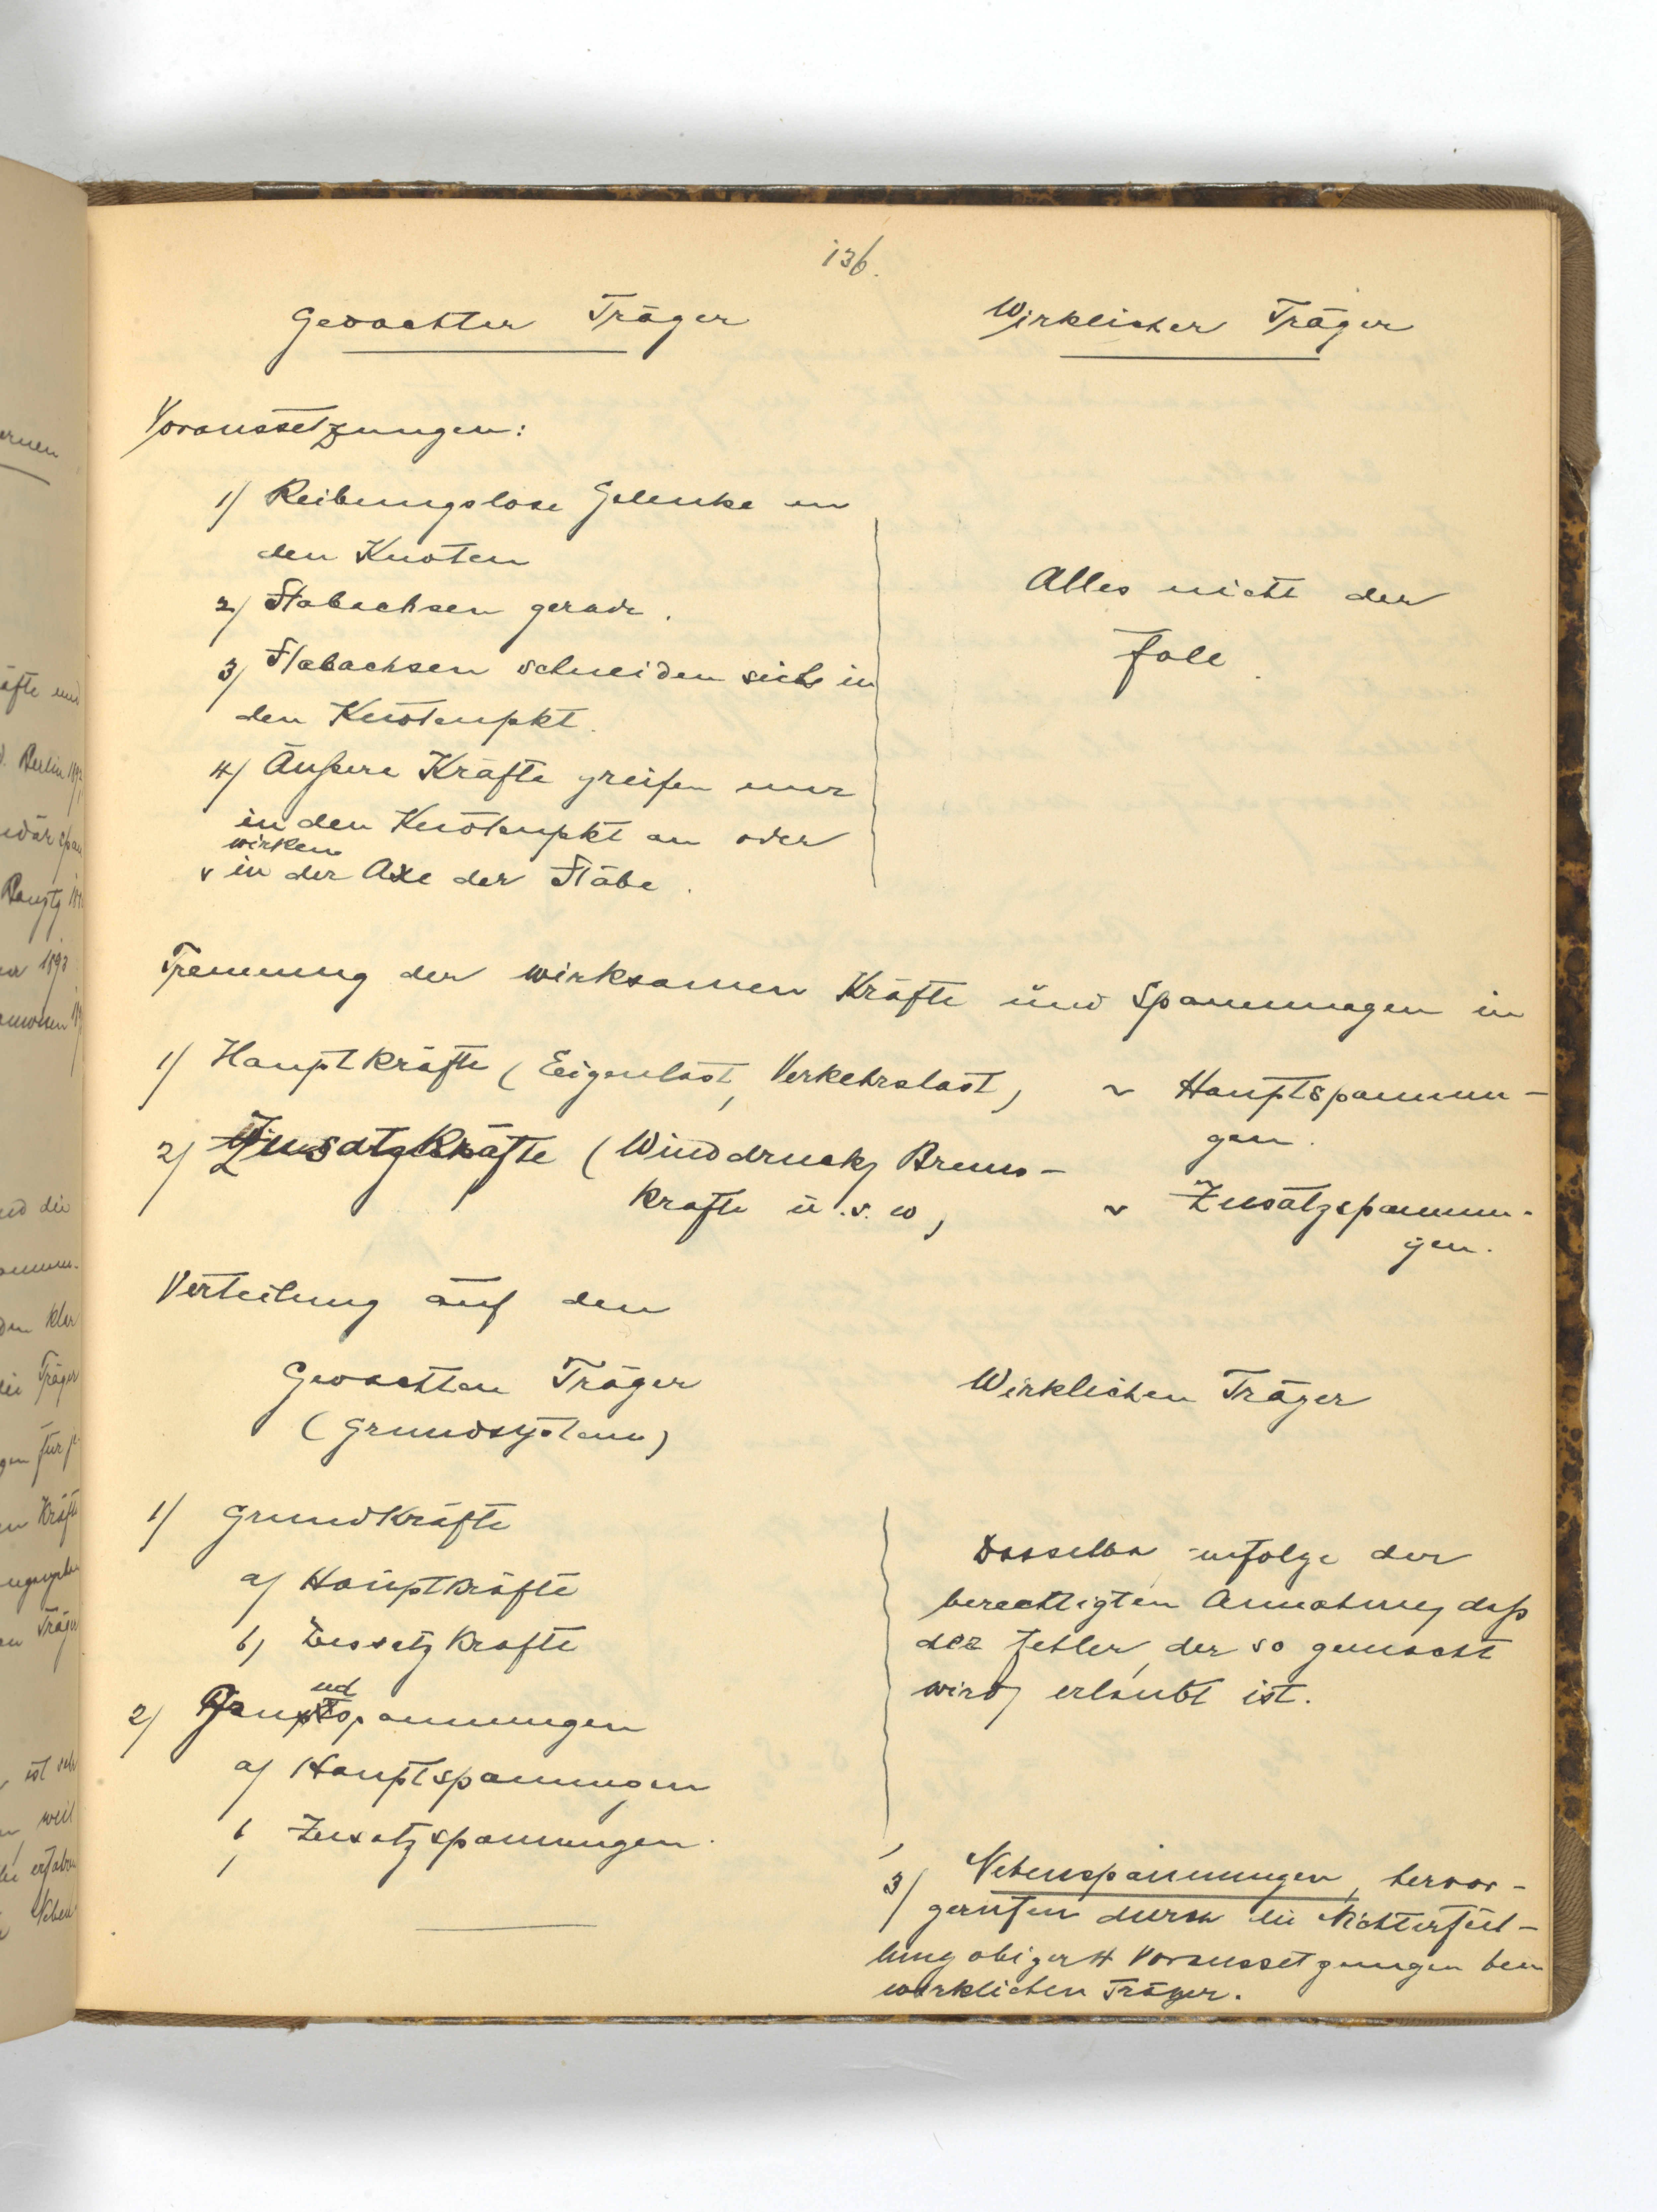 136.
Gedachter Träger
Wirklicher Träger
Voraussetzungen:
1) Reibungslose Gelenke in
den Knoten
2) Stabachsen gerade.
3) Stabachsen schneiden sich in
den Knotenpkt.
4) Äußere Kräfte greifen nur
in den Knotenpkt an oder
wirken
v in der Axe der Stäbe.
Alles nicht der
Fall.
Trennung der wirksamen Kräfte und Spannungen in
1) Hauptkräfte (Eigenlast, Verkehrslast) ~ Hauptspannun-
gen.
2) Zusatzkräfte (Winddruck, Brems-
kräfte u.s.w) ~ Zusatzspannun-
gen.
Verteilung auf den
Gedachten Träger
(Grundsystem)
Wirklichen Träger
1) Grundkräfte
a) Hauptkräfte
b) Zusatzkräfte
2) Grundspannungen
a) Hauptspannungen
b) Zusatzspannungen.
Dasselbe infolge der
berechtigten Annahme, daß
der Fehler, der so gemacht
wird, erlaubt ist.
3) Nebenspannungen, hervor-
gerufen durch die Nichterfül-
lung obiger 4 Voraussetzungen beim
wirklichen Träger.
ernen
äfte und
Berlin
1893
die
Träger
für
Kräfte
Träger
ist
weil